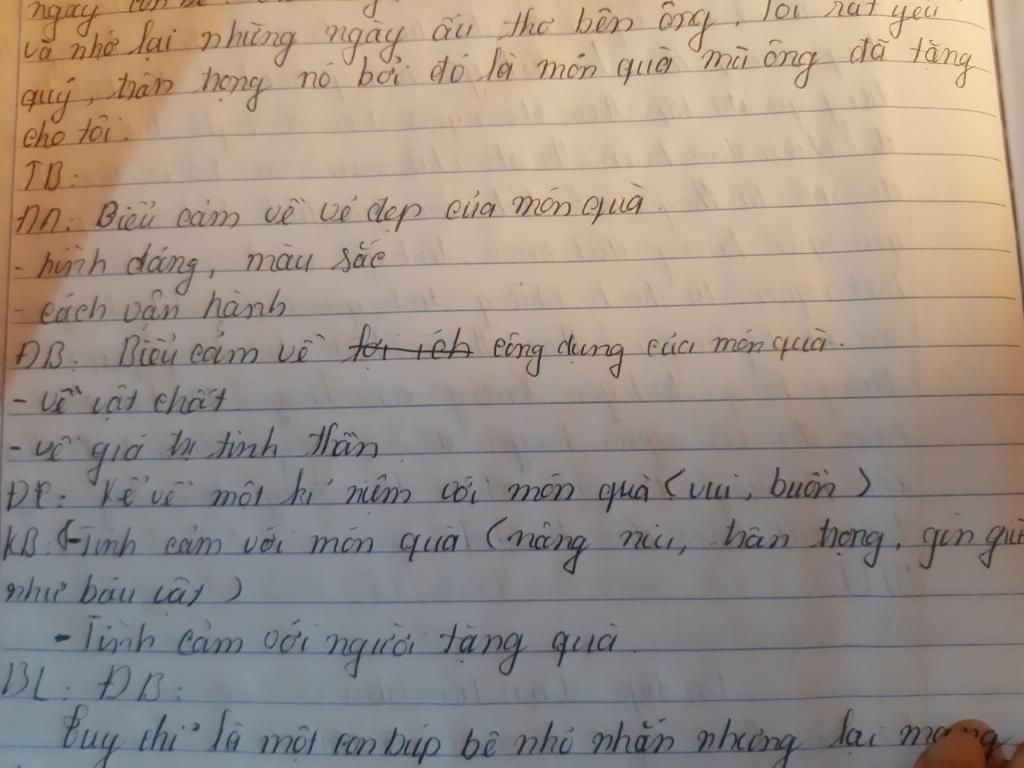 ngày con bé
và nhớ lại những ngày ấu thơ bên ông. Tôi rất yêu
quý, trân trọng nó bởi đó là món quà mà ông đã tặng
cho tôi.
TB:
ĐA: Biểu cảm về vẻ đẹp của món quà
- hình dáng, màu sắc
- cách vận hành
ĐB: Biểu cảm về lợi ích công dụng của món quà.
- về vật chất
- về giá trị tinh thần
ĐC: Kể về một kỉ niệm với món quà (vui, buồn)
KB: - Tình cảm với món quà (nâng niu, trân trọng, gìn giữ
như báu vật)
- Tình cảm với người tặng quà
BL: ĐB:
Tuy chỉ là một con búp bê nhỏ nhắn nhưng lại mang